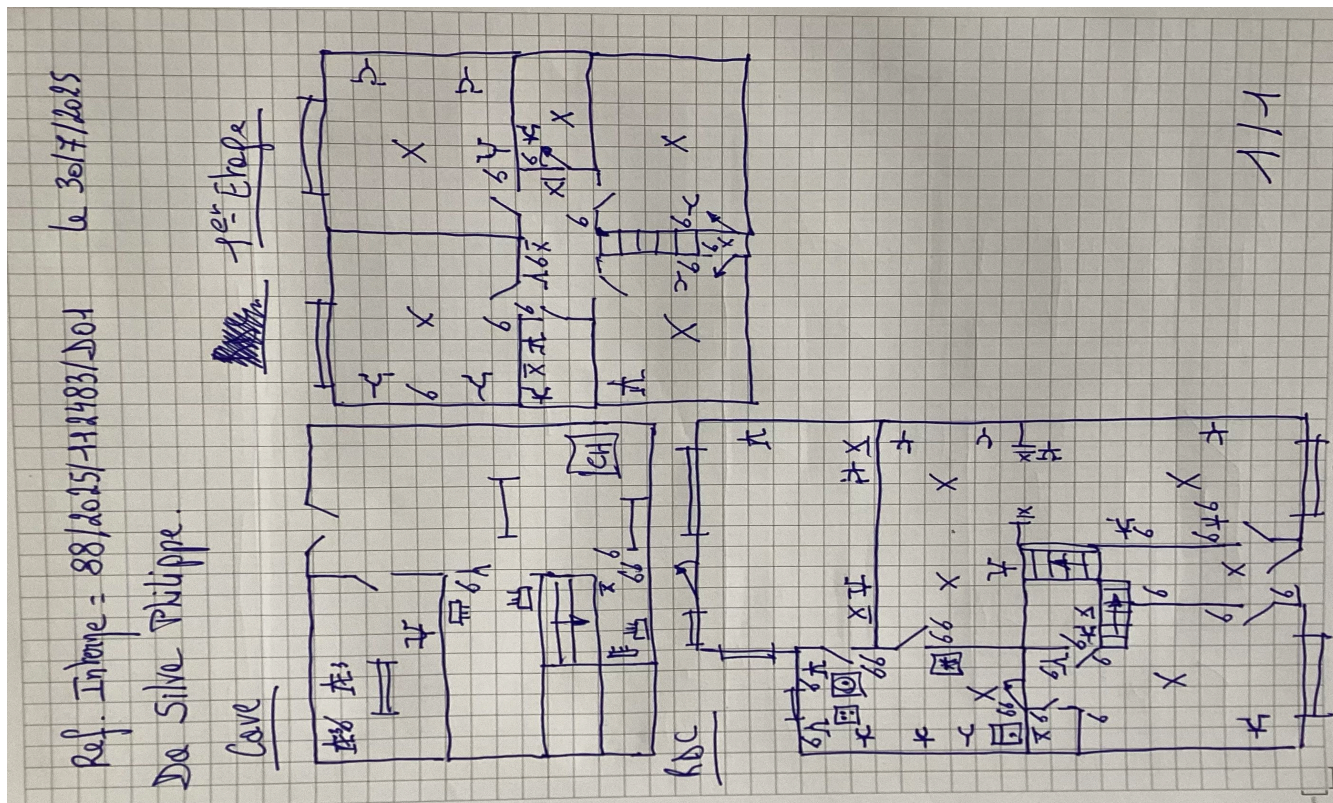 Ref. Interne = 88/2025/112483/D01
le 30/7/2025
Da Silva Philippe.
Cave
1er Etage
CH
RDC
1/1